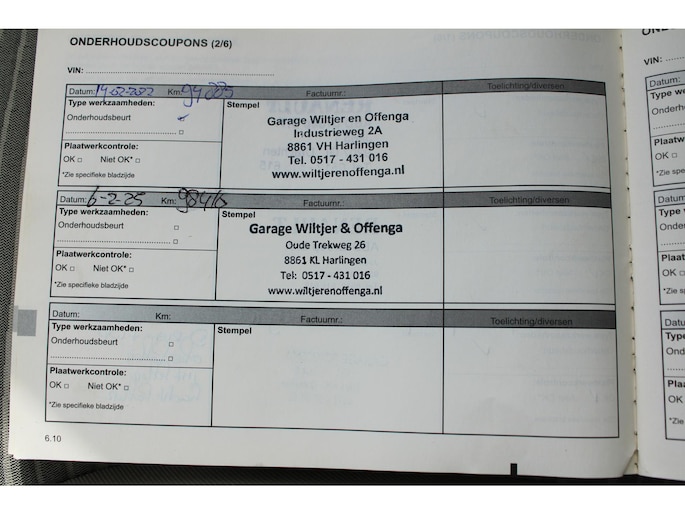 ONDERHOUDSCOUPONS (2/6)
VIN:
Datum: 14-02-2022 Km: 94335 Factuurnr.: Toelichting/diversen
Type werkzaamheden: Stempel
Onderhoudsbeurt
Garage Wiltjer en Offenga
Industrieweg 2A
8861 VH Harlingen
Tel. 0517 - 431 016
www.wiltjerenoffenga.nl
Plaatwerkcontrole:
OK □ Niet OK* □
*Zie specifieke bladzijde
Datum: 6-2-25 Km: 98416 Factuurnr.: Toelichting/diversen
Type werkzaamheden: Stempel
Onderhoudsbeurt □
Garage Wiltjer & Offenga
Oude Trekweg 26
8861 KL Harlingen
Tel: 0517 - 431 016
www.wiltjerenoffenga.nl
Plaatwerkcontrole:
OK □ Niet OK* □
*Zie specifieke bladzijde
Datum: Km: Factuurnr.: Toelichting/diversen
Type werkzaamheden: Stempel
Onderhoudsbeurt □
Plaatwerkcontrole:
OK □ Niet OK* □
*Zie specifieke bladzijde
6.10
VIN: